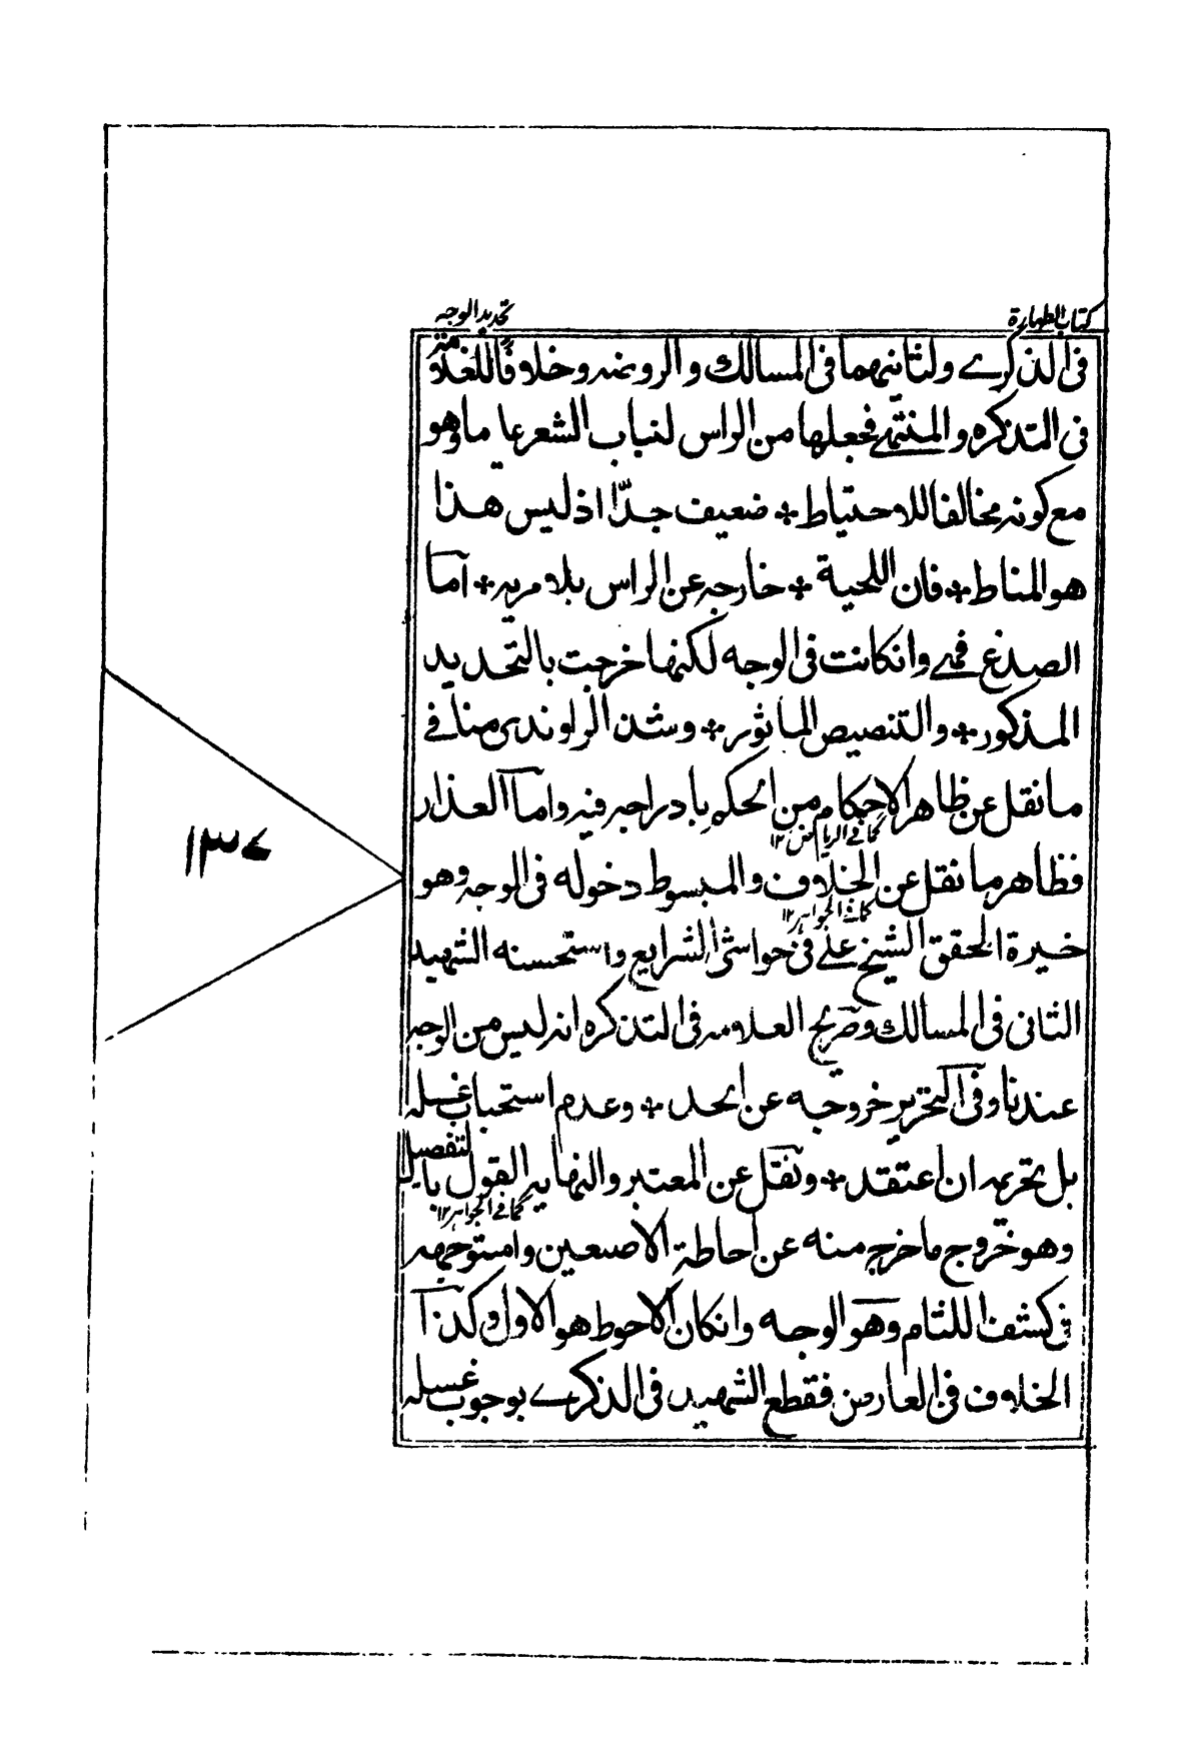 كتاب الطهارة
تحديد الوجه
فى الذكرے ولثانيهما فى المسالك والروضه وخلافًا للعلامة
فى التذكره والمنتهے فجعلها من الراس لنبات الشعر عليها وهو
مع كونه مخالفا للاحتياط * ضعيف جدّا اذ ليس هذا
هو المناط * فان اللحية * خارجه عن الراس بلا مريه * اما
الصدغ فهے وانكانت فى الوجه لكنها خرجت بالتحديد
المذكور * والتنصيص الماثور * وشذ الراوندى منا فے
ما نقل عن ظاهر الاحكام من الحكم بادراجه فيه واما العذار
كما فى الرياض ١٢
فظاهر ما نقل عن الخلاف والمبسوط دخوله فى الوجه وهو
كما فى الجواهر ١٢
خيرة المحقق الشيخ علے فى حواشى الشرايع واستحسنه الشهيد
الثانى فى المسالك وصريح العلامه فى التذكره انه ليس من الوجه
عندنا وفى التحرير خروجه عن الحد * وعدم استحباب غسله
بل بتحريمه ان اعتقد * ونقل عن المعتبر والنهايه القول بالتفصيل
كما فى الجواهر ١٢
وهو خروج ما خرج منه عن احاطة الاصبعين واستوجهه
فى كشف اللثام وهو الوجه وانكان الاحوط هو الاول وكذا
الخلاف فى العارض فقطع الشهيد فى الذكرے بوجوب غسله
١٣٧